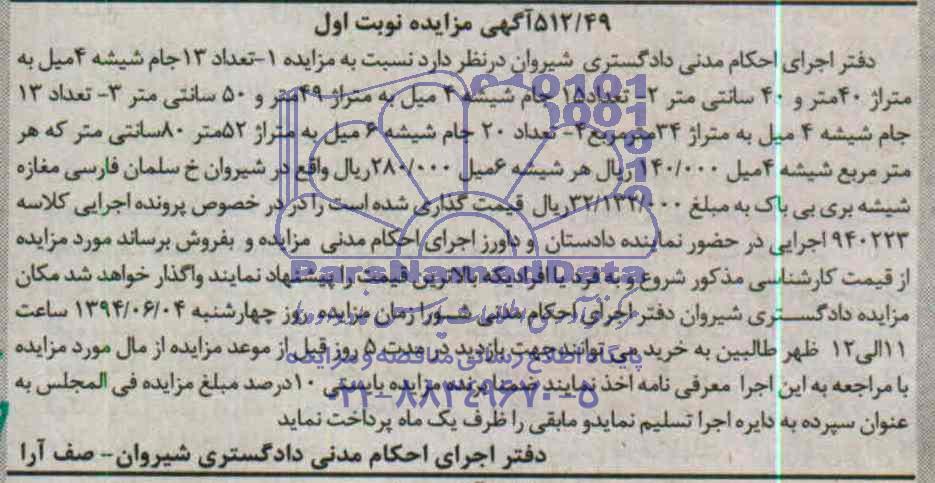 ۵۱۲/۴۹آگهی مزایده نوبت اول
دفتر اجرای احکام مدنی دادگستری شیروان درنظر دارد نسبت به مزایده ۱-تعداد ۱۳جام شیشه ۴میل به
متراژ ۴۰متر و ۴۰ سانتی متر ۲- تعداد۱۵ جام شیشه ۴ میل به متراژ ۴۹متر و ۵۰ سانتی متر ۳- تعداد ۱۳
جام شیشه ۴ میل به متراژ ۳۴مترمربع۴- تعداد ۲۰ جام شیشه ۶ میل به متراژ ۵۲متر ۸۰سانتی متر که هر
متر مربع شیشه ۴میل ۱۴۰/۰۰۰ ریال هر شیشه ۶میل ۲۸۰/۰۰۰ریال واقع در شیروان خ سلمان فارسی مغازه
شیشه بری بی باک به مبلغ ۳۲/۱۳۲/۰۰۰ریال قیمت گذاری شده است را در در خصوص پرونده اجرایی کلاسه
۹۴۰۲۲۳ اجرایی در حضور نماینده دادستان و داورز اجرای احکام مدنی مزایده و بفروش برساند مورد مزایده
از قیمت کارشناسی مذکور شروع و به فرد یا افرادیکه بالاترین قیمت را پیشنهاد نمایند واگذار خواهد شد مکان
مزایده دادگستری شیروان دفتر اجرای احکام مدنی شورا زمان مزایده روز چهارشنبه ۱۳۹۴/۰۶/۰۴ ساعت
۱۱الی۱۲ ظهر طالبین به خرید می توانند جهت بازدید در مدت ۵ روز قبل از موعد مزایده از مال مورد مزایده
با مراجعه به این اجرا معرفی نامه اخذ نمایند ضمنا برنده مزایده بایستی ۱۰درصد مبلغ مزایده فی المجلس به
عنوان سپرده به دایره اجرا تسلیم نمایدو مابقی را ظرف یک ماه پرداخت نماید
دفتر اجرای احکام مدنی دادگستری شیروان- صف آرا
ParsNamadData
پایگاه اطلاع رسانی مناقصه و مزایده
۰۲۱-۸۸۳۴۹۶۷۰-۵